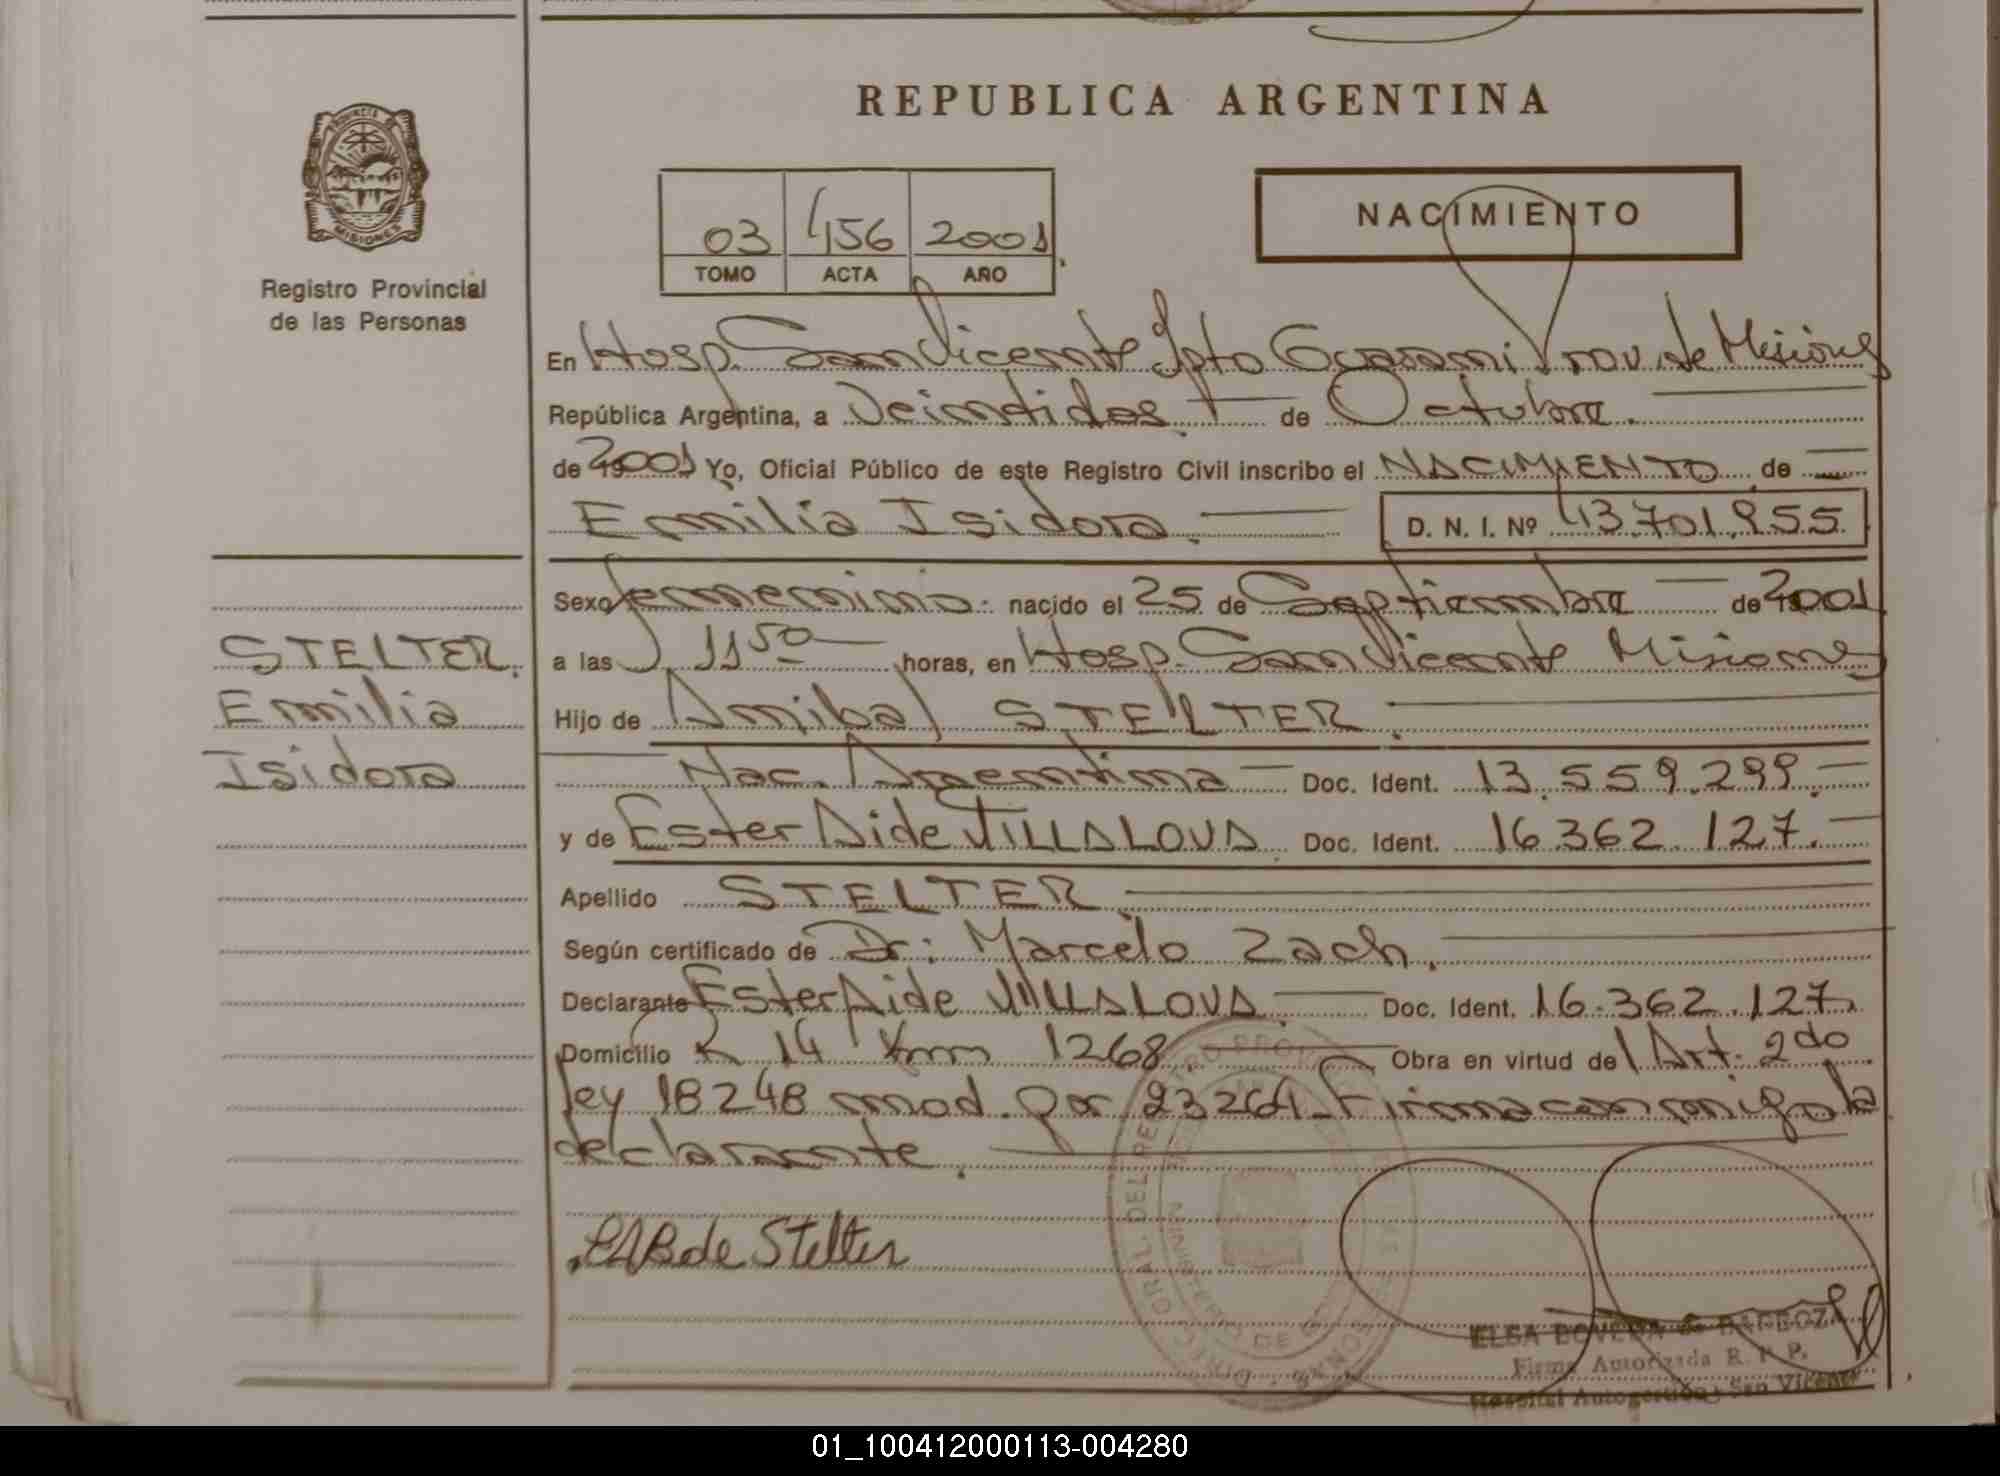 REPUBLICA ARGENTINA
PROVINCIA DE
MISIONES
Registro Provincial
de las Personas
03 456 2001
TOMO ACTA AÑO
NACIMIENTO
En Hosp. San Vicente Dpto Guarani Prov. de Misiones
República Argentina, a Veintidos de Octubre.
de 2001 Yo, Oficial Público de este Registro Civil inscribo el NACIMIENTO de
Emilia Isidora. D. N. I. Nº 43.701.955
Sexo femenino. nacido el 25 de Septiembre de 2001
a las 11 50 horas, en Hosp. San Vicente Misiones
Hijo de Anibal STELTER.
Nac. Argentina Doc. Ident. 13.559.299.
y de Ester Aide VILLALOVA. Doc. Ident. 16.362.127.
Apellido STELTER.
Según certificado de Dr: Marcelo Zach.
Declarante Ester Aide VILLALOVA. Doc. Ident. 16.362.127.
Domicilio R 14 Km 1268 Obra en virtud del Art. 2do
ley 18248 mod. por 23264_Firma con migo la
declarante.
STELTER.
Emilia
Isidora
de Stelter
ELSA BOVEDA de BARBOZA
Firma Autorizada R. P. P.
Hospital Autogestión - San Vicente
01_100412000113-004280